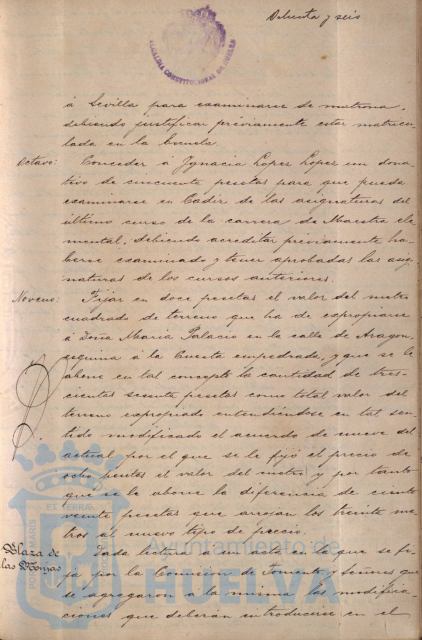 Ochenta y seis
ALCALDIA CONSTITUCIONAL DE HUELVA
á Sevilla para examinarse de matrona,
debiendo justificar préviamente estar matricu-
lada en la Escuela.
Octavo: Conceder á Ignacia Lopez Lopez un dona-
tivo de cincuenta pesetas para que pueda
examinarse en Cadiz de las asignaturas del
último curso de la carrera de Maestra ele-
mental, debiendo acreditar previamente ha-
berse examinado y tener aprobadas las asig-
naturas de los cursos anteriores.
Noveno: Fijar en doce pesetas el valor del metro
cuadrado de terreno que ha de expropiarse
á Doña Maria Palacio en la calle de Aragon,
esquina á la Cuesta empedrada, y que se le
abone en tal concepto la cantidad de tres-
cientas sesenta pesetas como total valor del
terreno expropiado entendiéndose en tal sen-
tido modificado el acuerdo de nueve del
actual por el que se le fijó el precio de
ocho pesetas el valor del metro y por tanto
que se le abone la diferencia de ciento
veinte pesetas que arrojan los treinta me-
tros al nuevo tipo de precio.
Plaza de
las Monjas
Dada lectura á un acta en la que se fi-
ja por la Comision de Fomento y Señores que
se agregaron á la misma las modifica-
ciones que deberán introducirse en el
Ayuntamiento de
HUELVA